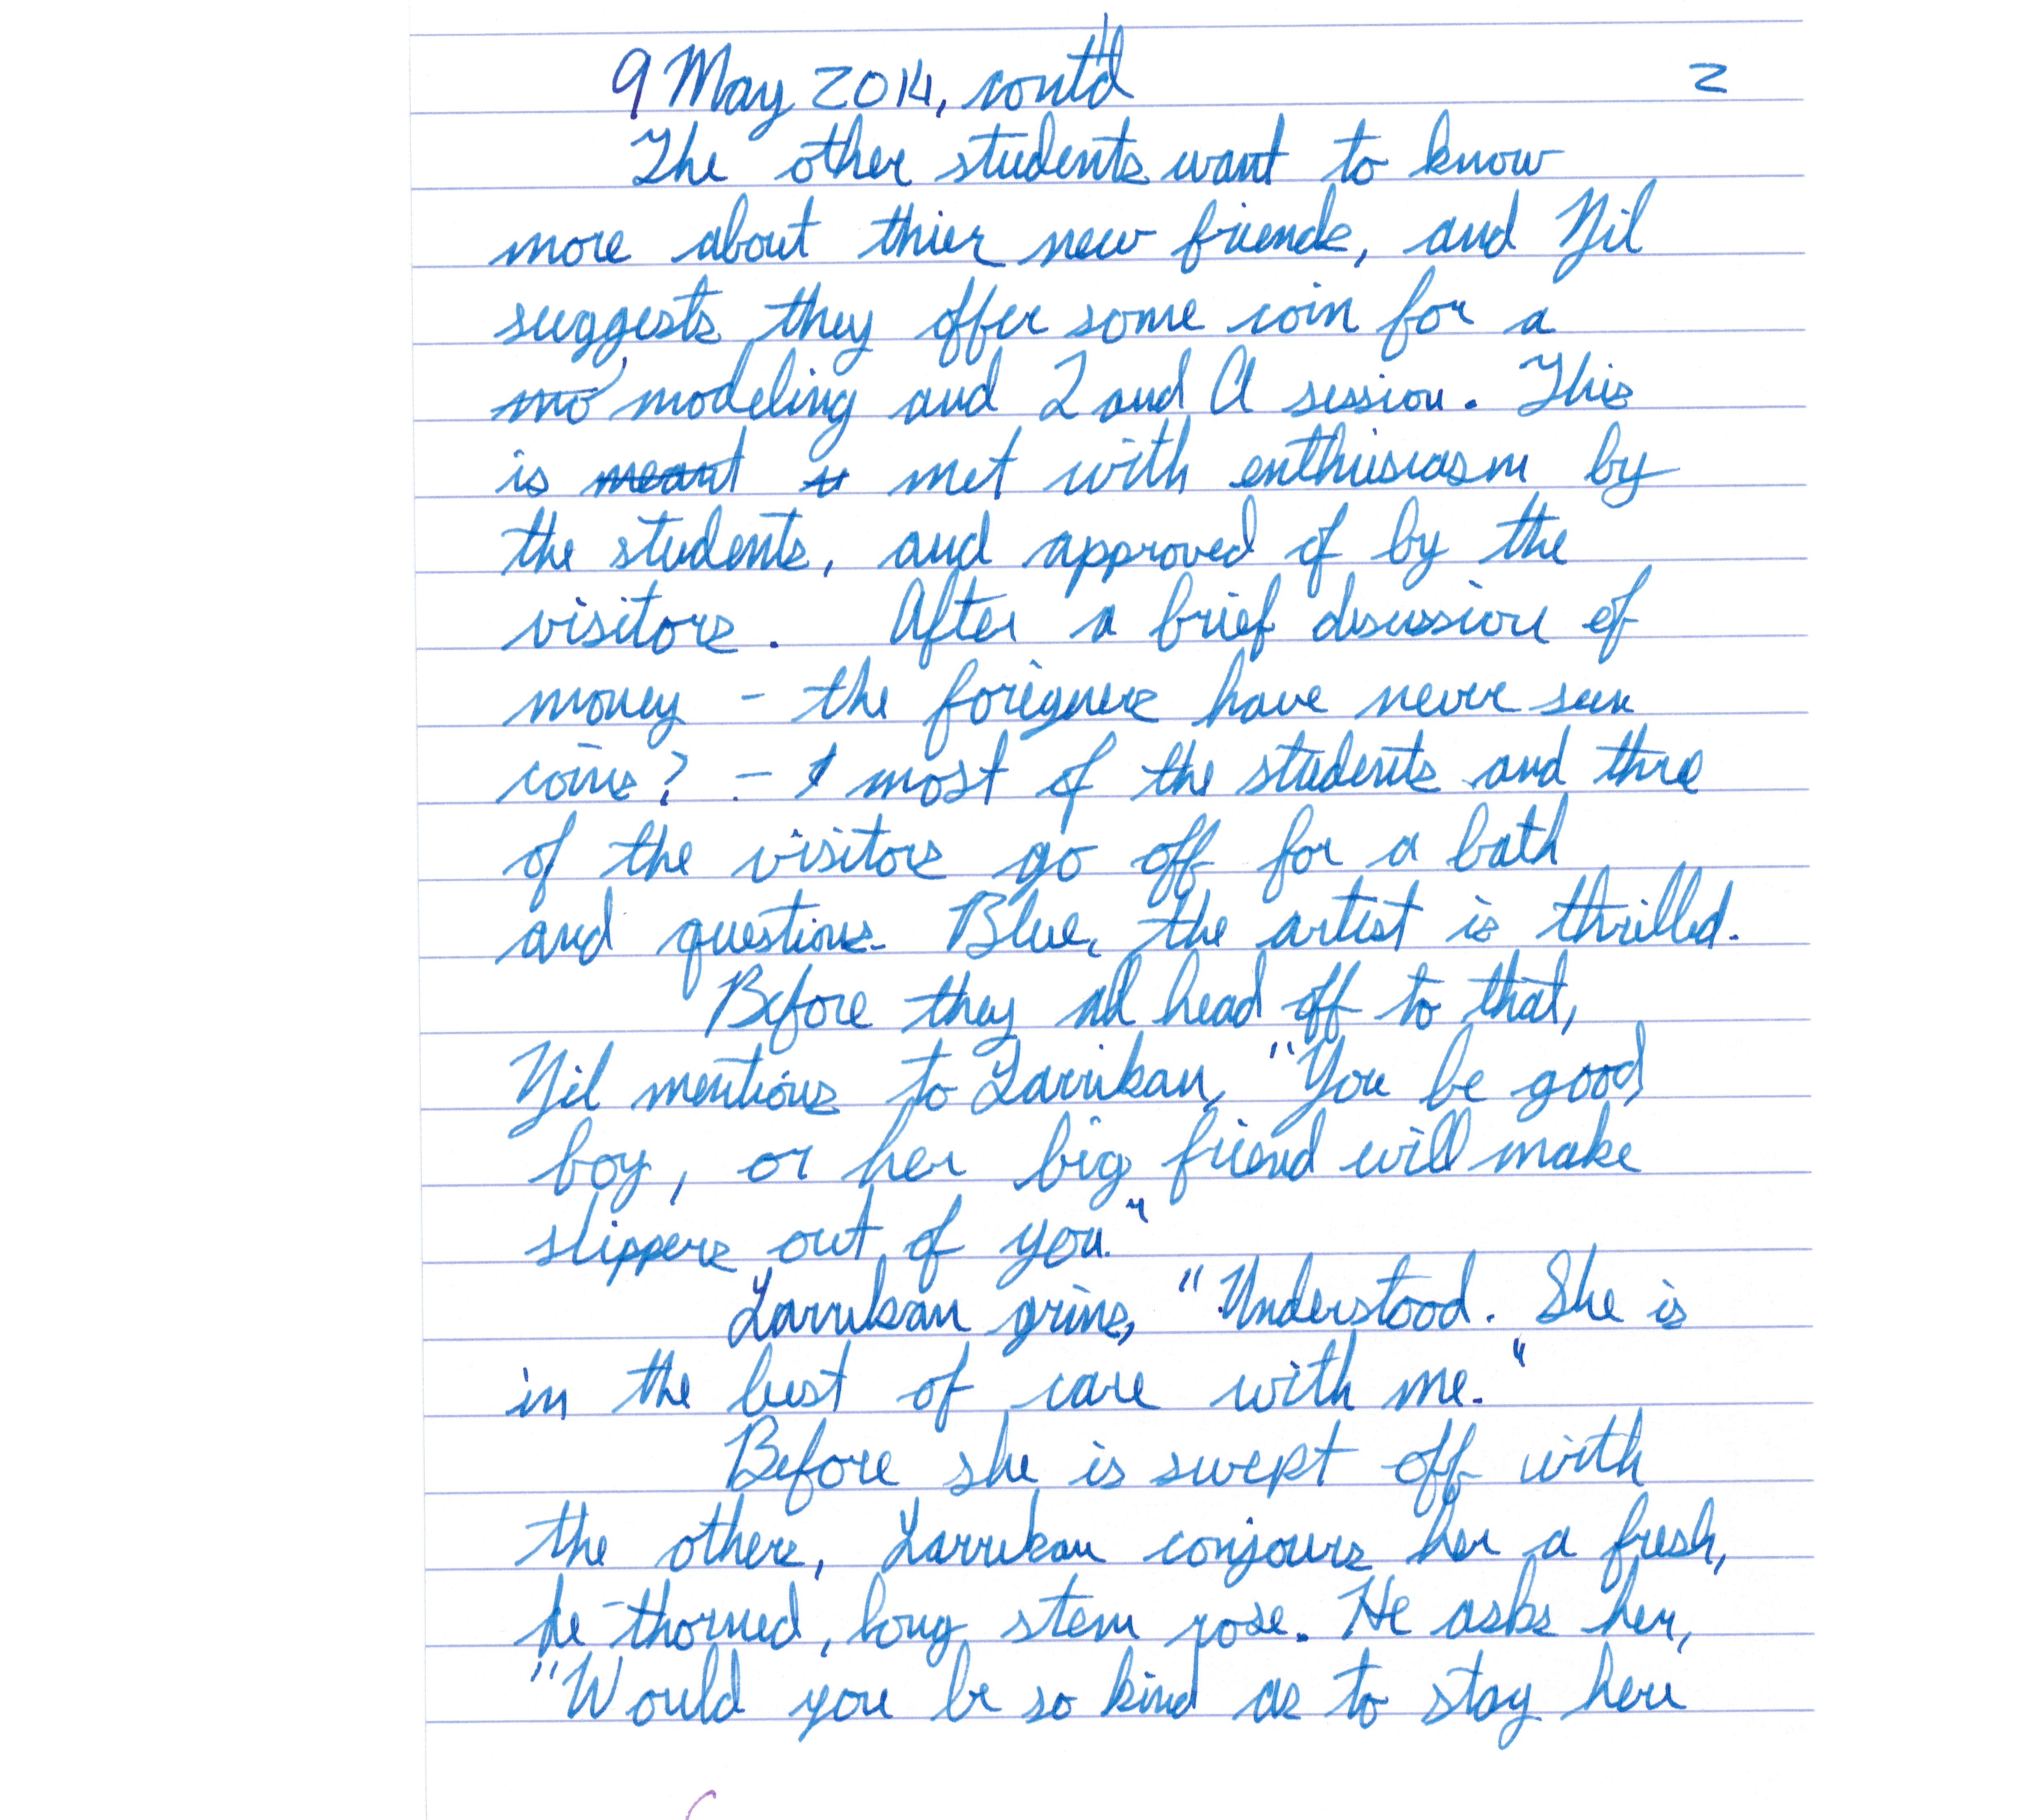 9 May 2014, cont'd 2
The other students want to know
more about thier new friends, and Yil
suggests they offer some coin for a
mo modeling and Q and A session. This
is meant to met with enthusiasm by
the students, and approved of by the
visitors. After a brief discussion of
money - the foreigners have never seen
coins? - most of the students and three
of the visitors go off for a bath
and questions. Blue, the artist is thrilled.
Before they all head off to that,
Yil mentions to Larrikan, "You be good
boy, or her big friend will make
slippers out of you."
Larrikan grins, "Understood. She is
in the best of care with me."
Before she is swept off with
the others, Larrikan conjours her a fresh,
de-thorned, long stem rose. He asks her,
"Would you be so kind as to stay here